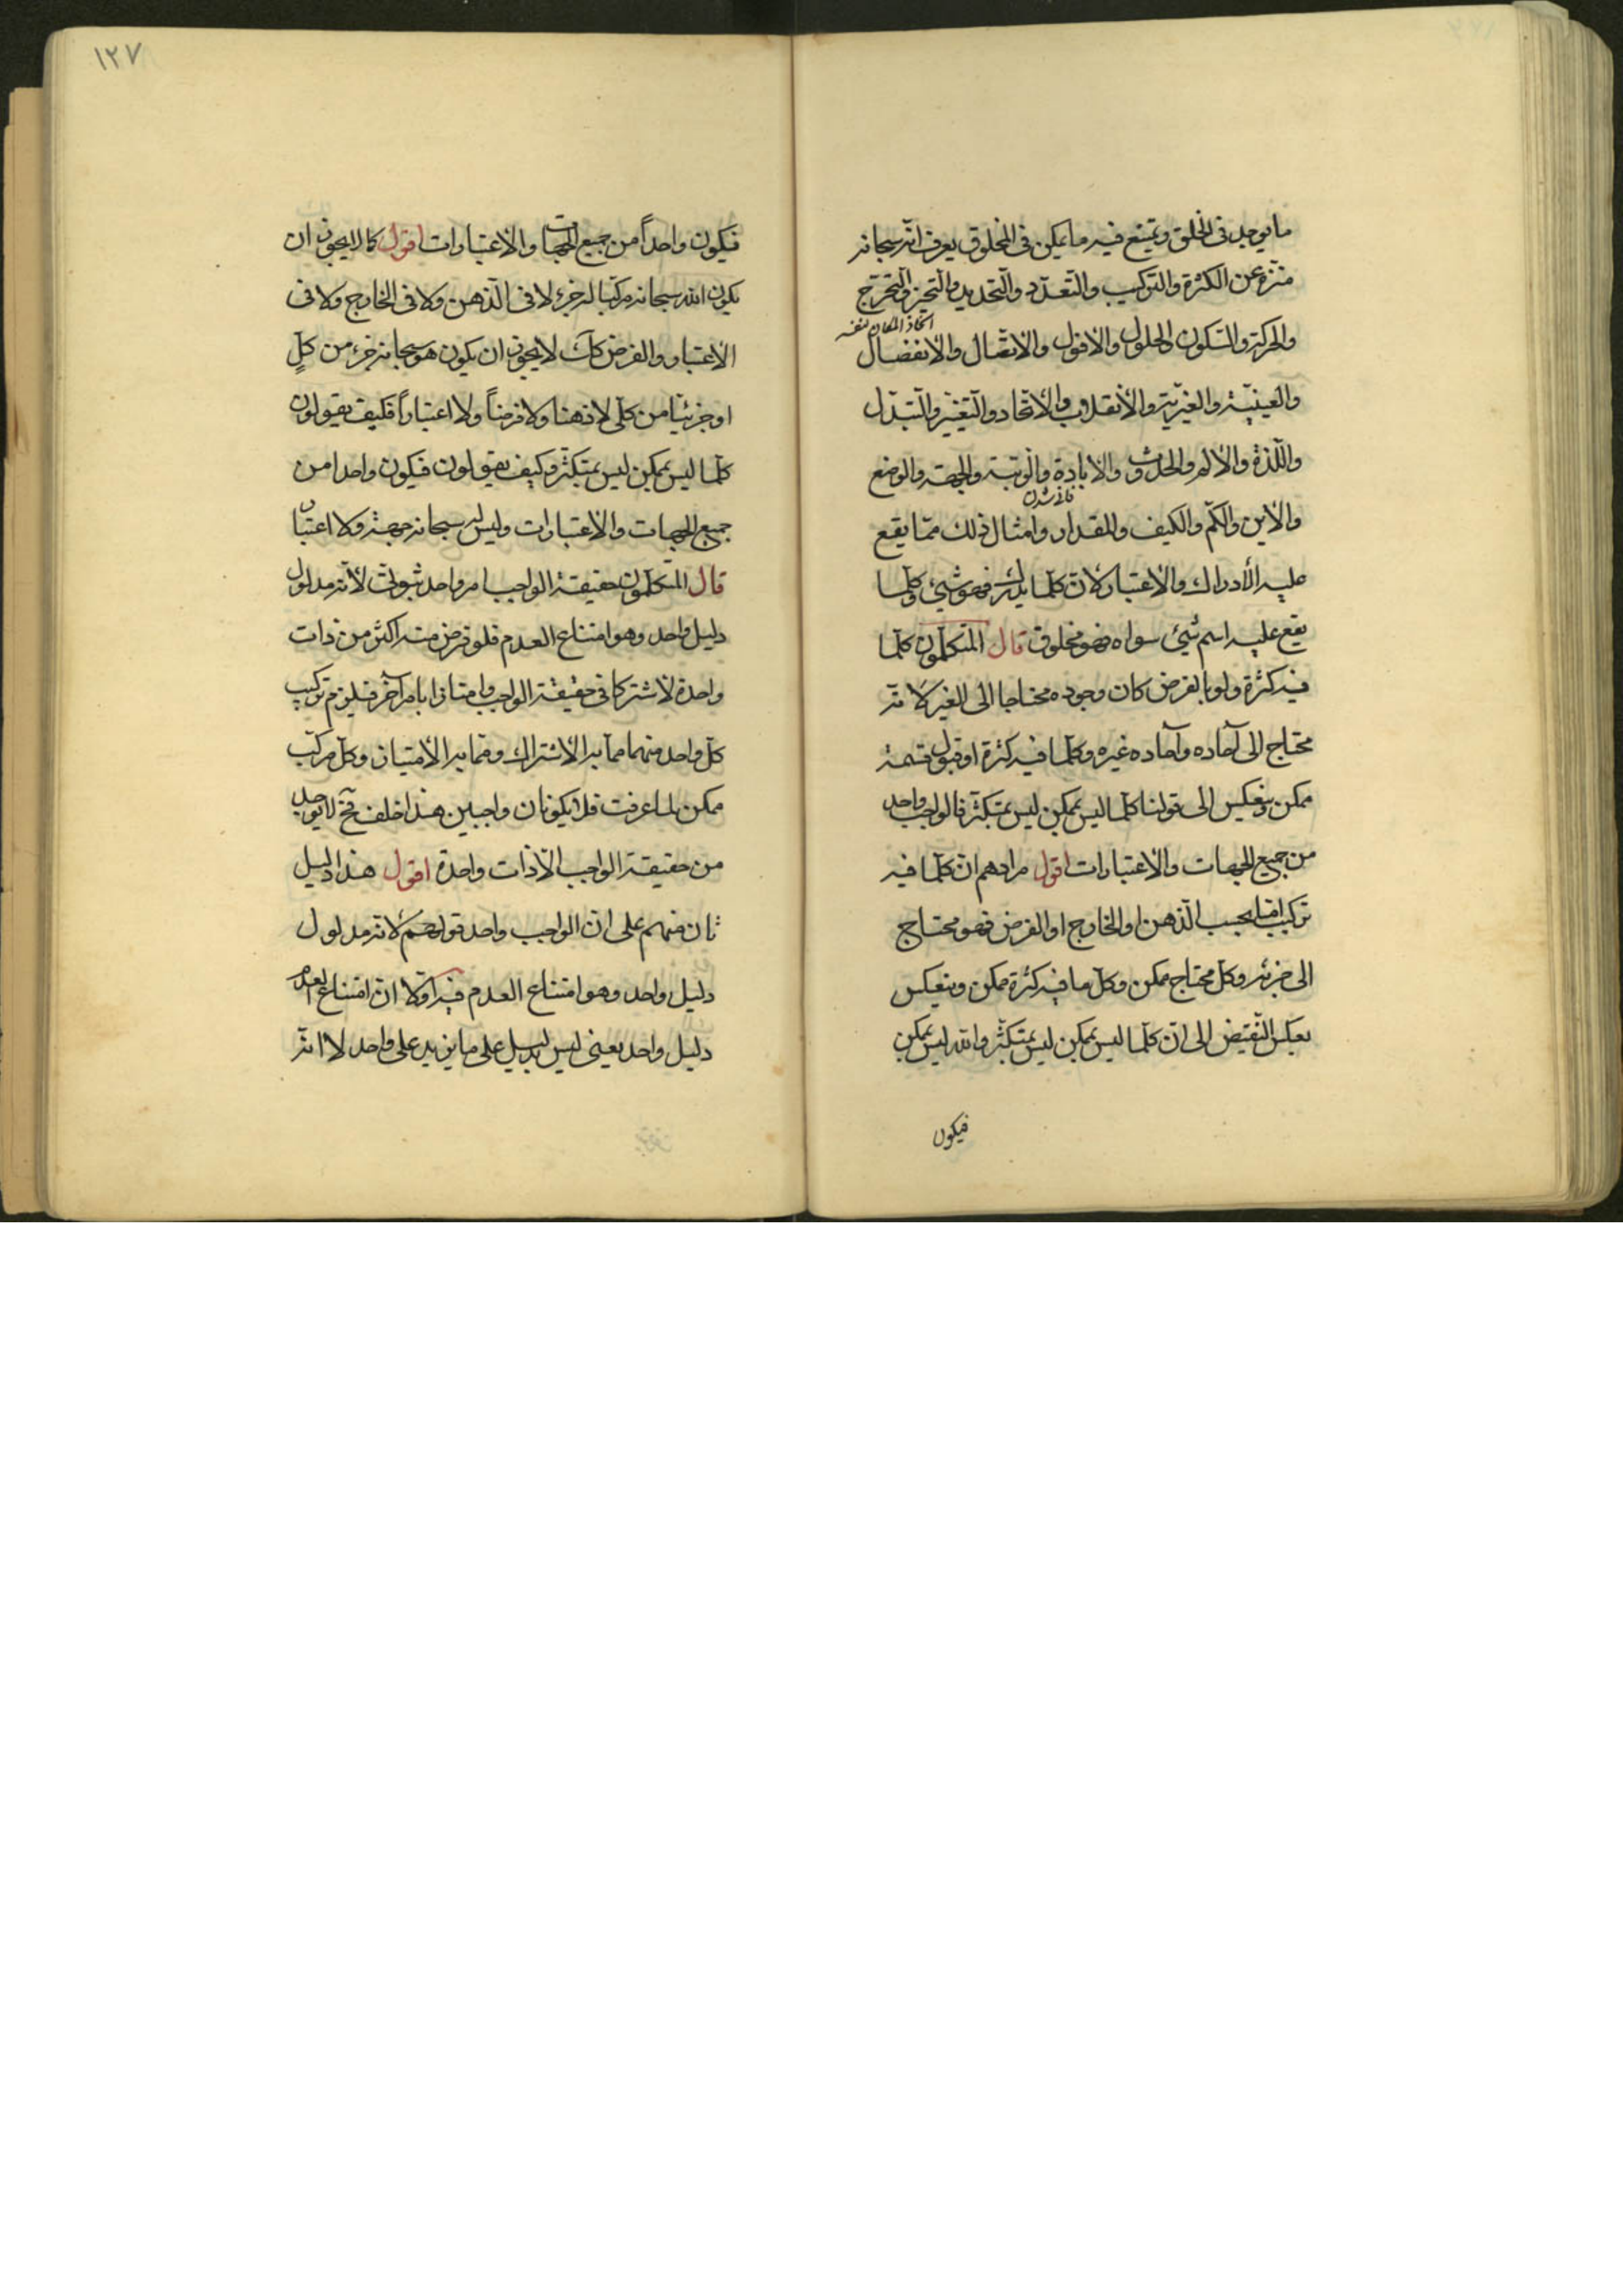 ما يوجد فى الخلق ويمتنع فيه ما يمكن فى المخلوق يعرف انه سبحانه
منزه عن الكثرة والتركيب والتعدد والتحديد والتحيز والتحرج
اتخاذ المكان لنفسه
والحركة والسكون والحلول والافول والاتصال والانفصال
والعينية والغيرية والانقلاب والاتحاد والتغير والتبدل
واللذة والالم والحدوث والابادة والرتبة والجهة والوضع
والاين والكم والكيف والمقدار وامثال ذلك مما يقع
عليه الادراك والاعتبار لان كلما يدرك فهو شيئ وكلما
يقع عليه اسم شيئ سواه فهو مخلوق قال المتكلمون كلما
فيه كثرة ولو بالفرض كان وجوده محتاجا الى الغير لانه
محتاج الى آحاده وآحاده غيره وكلما فيه كثرة او قبول قسمة
ممكن وينعكس الى قولنا كلما ليس بممكن ليس بمتكثر فالواجب واحد
من جميع الجهات والاعتبارات اقول مرادهم ان كلما فيه
تركيب اما بحسب الذهن او الخارج او الفرض فهو محتاج
الى جزئه وكل محتاج ممكن وكل ما فيه كثرة ممكن وينعكس
بعكس النقيض الى ان كلما ليس بممكن ليس بمتكثر والله ليس بممكن
فيكون
١٢٧
فيكون واحداً من جميع الجهات والاعتبارات اقول كما لا يجوز ان
يكون الله سبحانه مركبا له جزء لا فى الذهن ولا فى الخارج ولا فى
الاعتبار والفرض كك لا يجوز ان يكون هو سبحانه جزء من كلٍ
او جزئيا من كلى لا ذهنا ولا فرضاً ولا اعتباراً فكيف يقولون
كلما ليس بممكن ليس بمتكثر وكيف يقولون فيكون واحدا من
جميع الجهات والاعتبارات وليس له سبحانه جهة ولا اعتبار
قال المتكلمون حقيقة الواجب امر واحد ثبوتى لانه مدلول
دليل واحد وهو امتناع العدم فلو فرض منه اكثر من ذات
واحدة لاشتركا فى حقيقة الواجب وامتازا بامر آخر فيلزم تركيب
كل واحد منهما مما به الاشتراك ومما به الامتياز وكل مركب
ممكن لما عرفت فلا يكونان واجبين هذا خلف فح لا يوجد
من حقيقة الواجب الا ذات واحدة اقول هذا دليل
ثان منهم على ان الواجب واحد قولهم لانه مدلول
دليل واحد وهو امتناع العدم فيه اولا ان امتناع العدم
دليل واحد يعنى ليس بدليل على ما يزيد على واحد لا انه